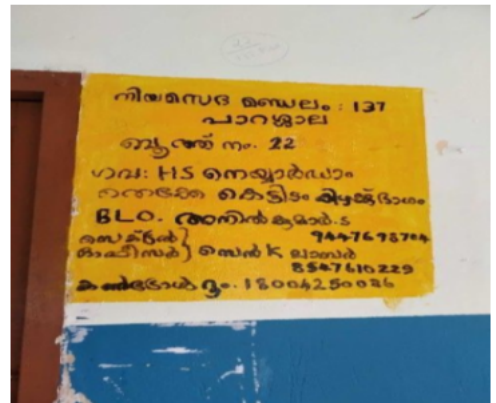 നിയമസഭ മണ്ഡലം : 137
പാറശ്ശാല
ബൂത്ത് നം. 22
ഗവ: HS നെയ്യാർഡാം
തെക്കേ കെട്ടിടം കിഴക്ക് ഭാഗം
BLO. അനിൽകുമാർ.S
സെക്ടറൽ } 9447698704
ഓഫീസർ } സെൻ K ലാബർ
8547610229
കൺട്രോൾ റൂം. 18004250026